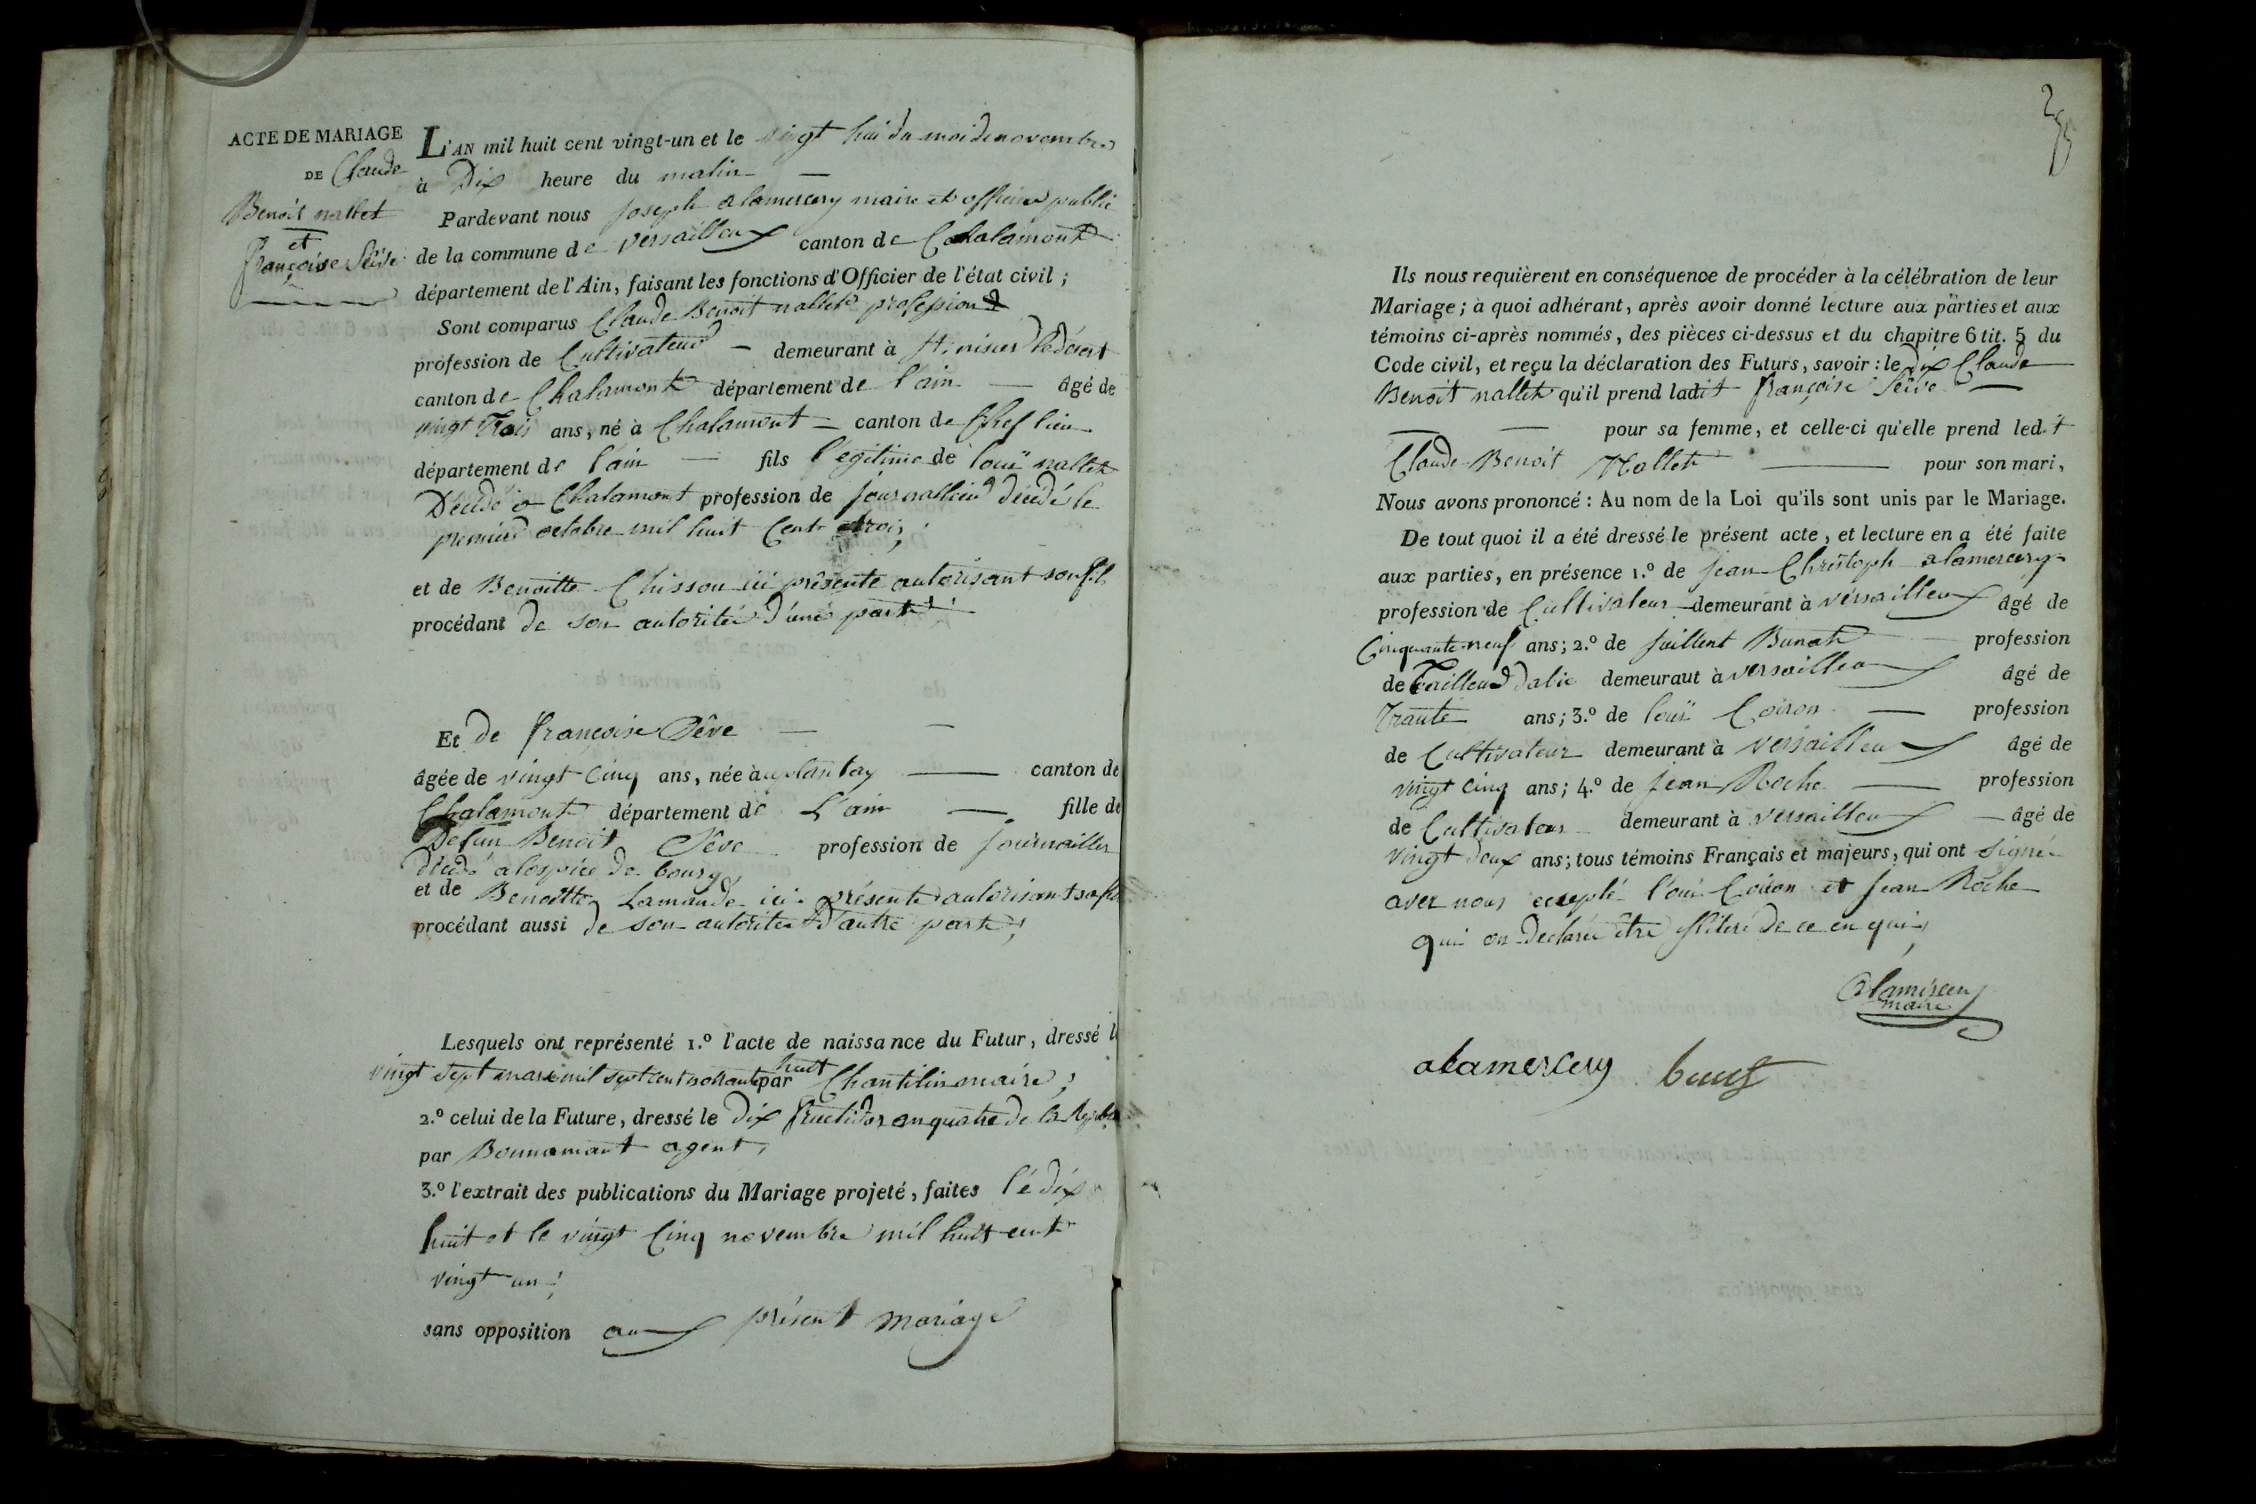 ACTE DE MARIAGE
DE Claude
Benoit nallet
et
françoise Sêve
L'AN mil huit cent vingt-un et le vingt hui du moi de novembre
à Dix heure du matin
Pardevant nous joseph alamercery maire et officier public
de la commune de versailleux canton de Chalamont
département de l'Ain, faisant les fonctions d'Officier de l'état civil ;
Sont comparus Claude Benoit nallet profession
profession de Cultivateur demeurant à St. nisier le désert
canton de Chalamont département de l'ain âgé de
vingt Trois ans, né à Chalamont canton de Chef lieu
département de l'ain fils légitime de louï nallet
Décédé a Chalamont profession de journallier décédé le
premier octobre mil huit Cent trois ;
et de Benoitte Chisson ici présente autorisant son fils
procédant de son autorité d'une part ;
Et de françoise Sêve
âgée de vingt Cinq ans, née au plantay canton de
Chalamont département de L'ain fille de
Defun Benoit Sêve profession de journallier
décédé a lospice de bourg,
et de Benoitte Lamande ici présente autorisant sa fille
procédant aussi de son autorité d'autre part ;
Lesquels ont représenté 1.º l'acte de naissance du Futur, dressé le
vingt sept mars mil sept cent nonante huit par Chantelin maire ;
2.º celui de la Future, dressé le dix fructidor an quatre de la Repub
par Bonnamant agent,
3.º l'extrait des publications du Mariage projeté, faites lé dix
huit et le vingt Cinq novembre mil huit cent
vingt un ;
sans opposition aux présent mariage
Ils nous requièrent en conséquence de procéder à la célébration de leur
Mariage ; à quoi adhérant, après avoir donné lecture aux parties et aux
témoins ci-après nommés, des pièces ci-dessus et du chapitre 6 tit. 5 du
Code civil, et reçu la déclaration des Futurs, savoir : le dix Claude
Benoit nallet qu'il prend ladit françoise Sêve
pour sa femme, et celle-ci qu'elle prend led.t
Claude Benoit Nallet pour son mari,
Nous avons prononcé : Au nom de la Loi qu'ils sont unis par le Mariage.
De tout quoi il a été dressé le présent acte, et lecture en a été faite
aux parties, en présence 1.º de jean Christoph alamercery
profession de Cultivateur demeurant à versailleux âgé de
Cinquante neuf ans ; 2.º de juillent Bunat profession
de Tailleur dabie demeuraut à versailleux âgé de
Trante ans ; 3.º de louï Coiron profession
de Cultivateur demeurant à versailleux âgé de
vingt cinq ans ; 4.º de jean Roche profession
de Cultivateur demeurant à versailleux âgé de
vingt deux ans ; tous témoins Français et majeurs, qui ont signé
avec nous ecepté louï Coiron et jean Roche
qui on declarée être illitere de ce en qui,
alamercery
maire
alamercery